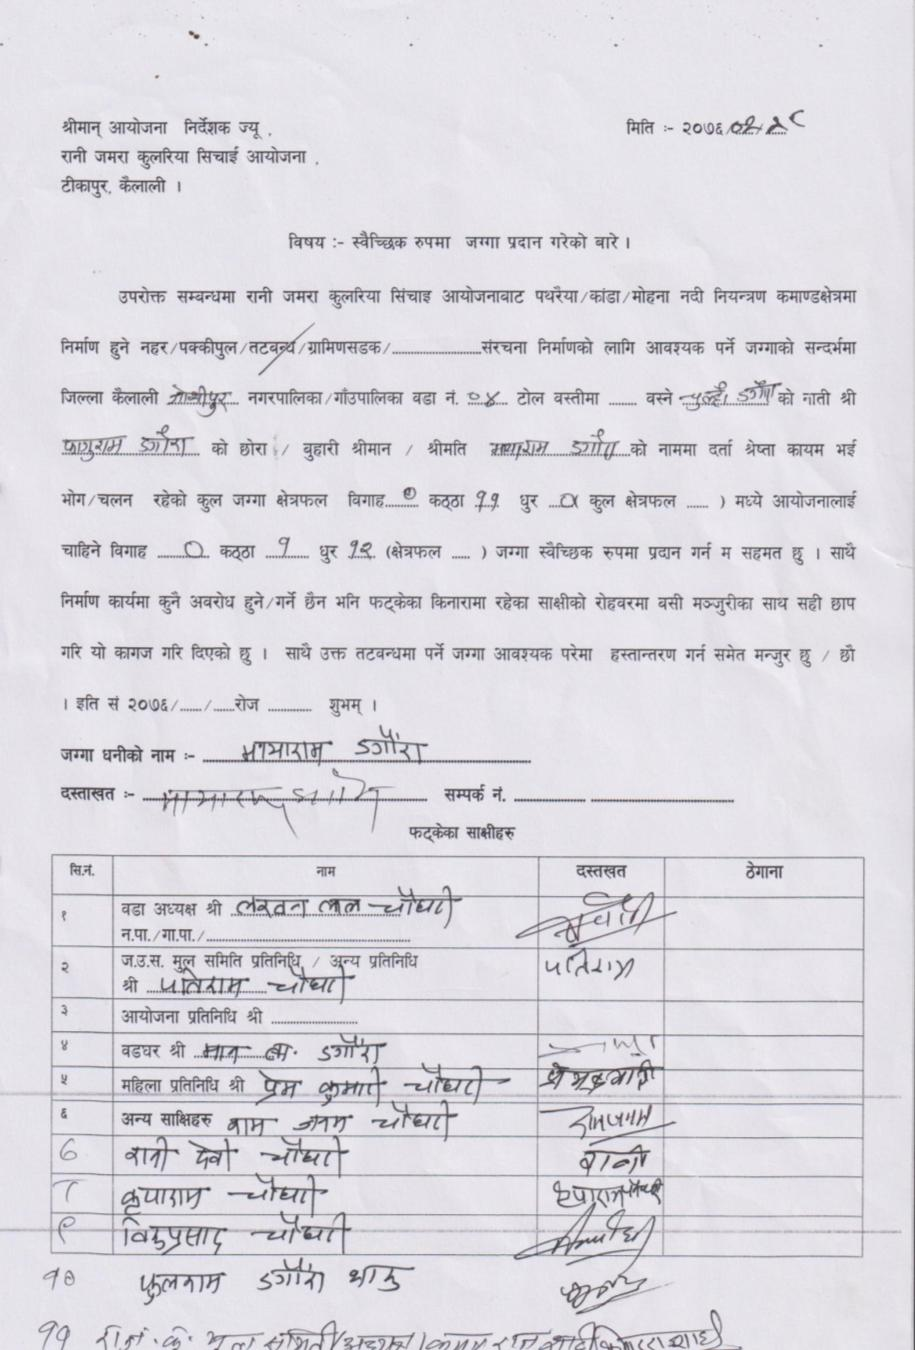 श्रीमान् आयोजना निर्देशक ज्यू , मिति :- २०७६
रानी जमरा कुलरिया सिचाई आयोजना ,
टीकापुर, कैलाली ।
विषय :- स्वैच्छिक रुपमा जग्गा प्रदान गरेको बारे ।
उपरोक्त सम्बन्धमा रानी जमरा कुलरिया सिंचाइ आयोजनावाट पथरैया/कांडा/मोहना नदी नियन्त्रण कमाण्डक्षेत्रमा
निर्माण हुने नहर/पक्कीपुल/तटबन्ध/ग्रामिणसडक/....................संरचना निर्माणको लागि आवश्यक पर्ने जग्गाको सन्दर्भमा
जिल्ला कैलाली जोशीपुर नगरपालिका/गाँउपालिका वडा नं. ०४ टोल वस्तीमा ....... वस्ने डगौरा को नाती श्री
फागुराम डगौरा को छोरा / बुहारी श्रीमान / श्रीमति डगौरा को नाममा दर्ता श्रेष्ता कायम भई
भोग/चलन रहेको कुल जग्गा क्षेत्रफल विगाह ० कठ्ठा ११ धुर ० कुल क्षेत्रफल ...... ) मध्ये आयोजनालाई
चाहिने विगाह ० कठ्ठा १ धुर १२ (क्षेत्रफल ..... ) जग्गा स्वैच्छिक रुपमा प्रदान गर्न म सहमत छु । साथै
निर्माण कार्यमा कुनै अवरोध हुने/गर्ने छैन भनि फट्केका किनारामा रहेका साक्षीको रोहवरमा वसी मञ्जुरीका साथ सही छाप
गरि यो कागज गरि दिएको छु । साथै उक्त तटवन्धमा पर्ने जग्गा आवश्यक परेमा हस्तान्तरण गर्न समेत मन्जुर छु / छौ
। इति सं २०७६/....../......रोज ............ शुभम् ।
जग्गा धनीको नाम :- डगौरा
दस्ताखत :- सम्पर्क नं. .................. ....................................
फट्केका साक्षीहरु
सि.नं. नाम दस्तखत ठेगाना
१ वडा अध्यक्ष श्री लाल चौधरी
न.पा./गा.पा./..................................................
२ ज.उ.स. मुल समिति प्रतिनिधि / अन्य प्रतिनिधि
श्री पतिराम चौधरी पतिराम
३ आयोजना प्रतिनिधि श्री .....................
४ वडघर श्री मान ब. डगौरा
५ महिला प्रतिनिधि श्री प्रेम कुमारी चौधरी
६ अन्य साक्षिहरु राम जनम चौधरी रामजनम
७ रानी देवी चौधरी रानी
८ कृपाराम चौधरी कृपाराम चौधरी
९ चौधरी
१० फुलराम डगौरा थारु
११